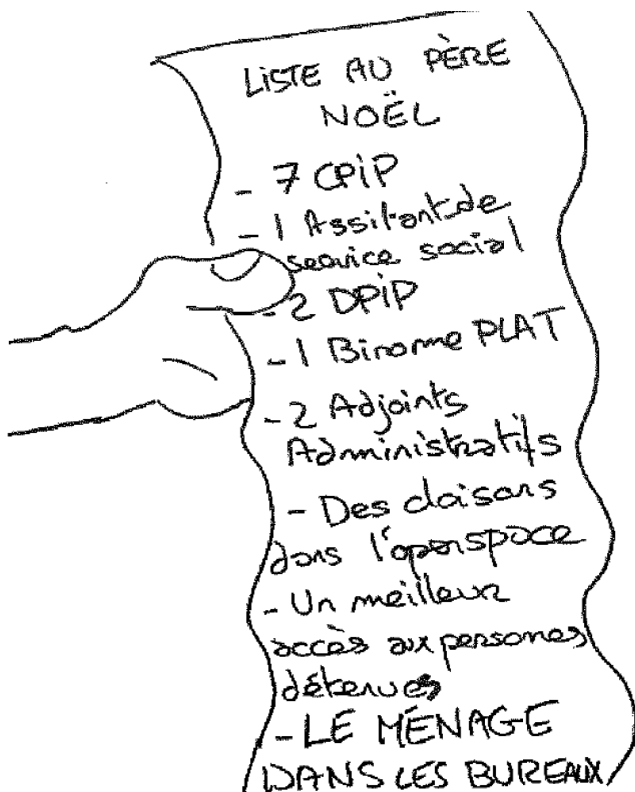 LISTE AU PÈRE
NOËL
- 7 CPiP
- 1 Assitant de
service social
- 2 DPiP
- 1 Binome PLAT
- 2 Adjoints
Administratifs
- Des cloisons
dans l'openspace
- Un meilleur
accès aux personnes
détenues
- LE MÉNAGE
DANS LES BUREAUX